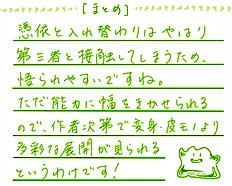 [まとめ]
憑依と入れ替わりはやはり
第三者と接触してしまうため、
悟られやすいですね。
ただ能力に幅をきかせられる
ので、作者次第で変身・皮モノより
多彩な展開が見られる
というわけです!